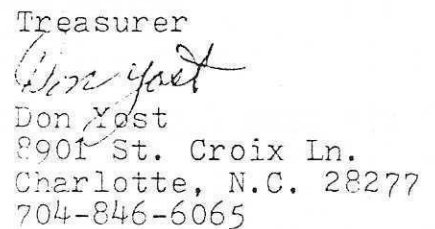 Treasurer
Don Yost
Don Yost
8901 St. Croix Ln.
Charlotte, N.C. 28277
704-846-6065